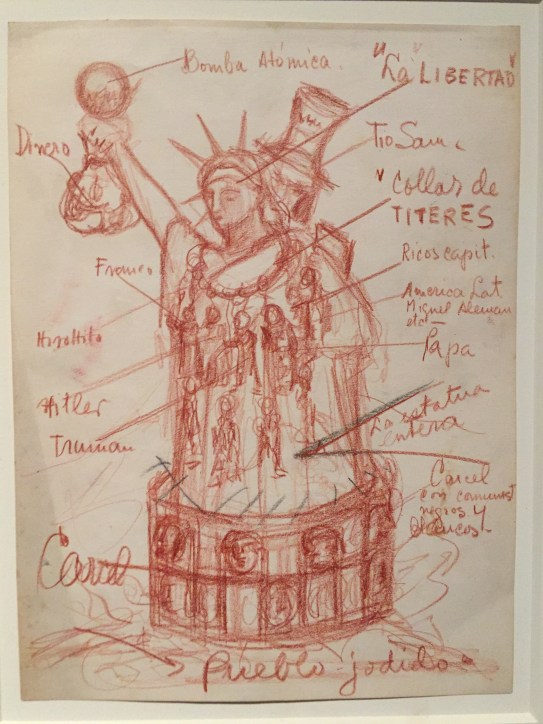 Bomba Atómica.
"La" LIBERTAD
Dinero
Tio Sam
"Collar de
TITERES
Ricos capit.
Franco
America Lat.
Miguel Aleman
etc
Hirohito
Papa
Hitler
La estatua
entera
Truman
Carcel
con comunist
negros y
blancos
Carcel
Pueblo jodido